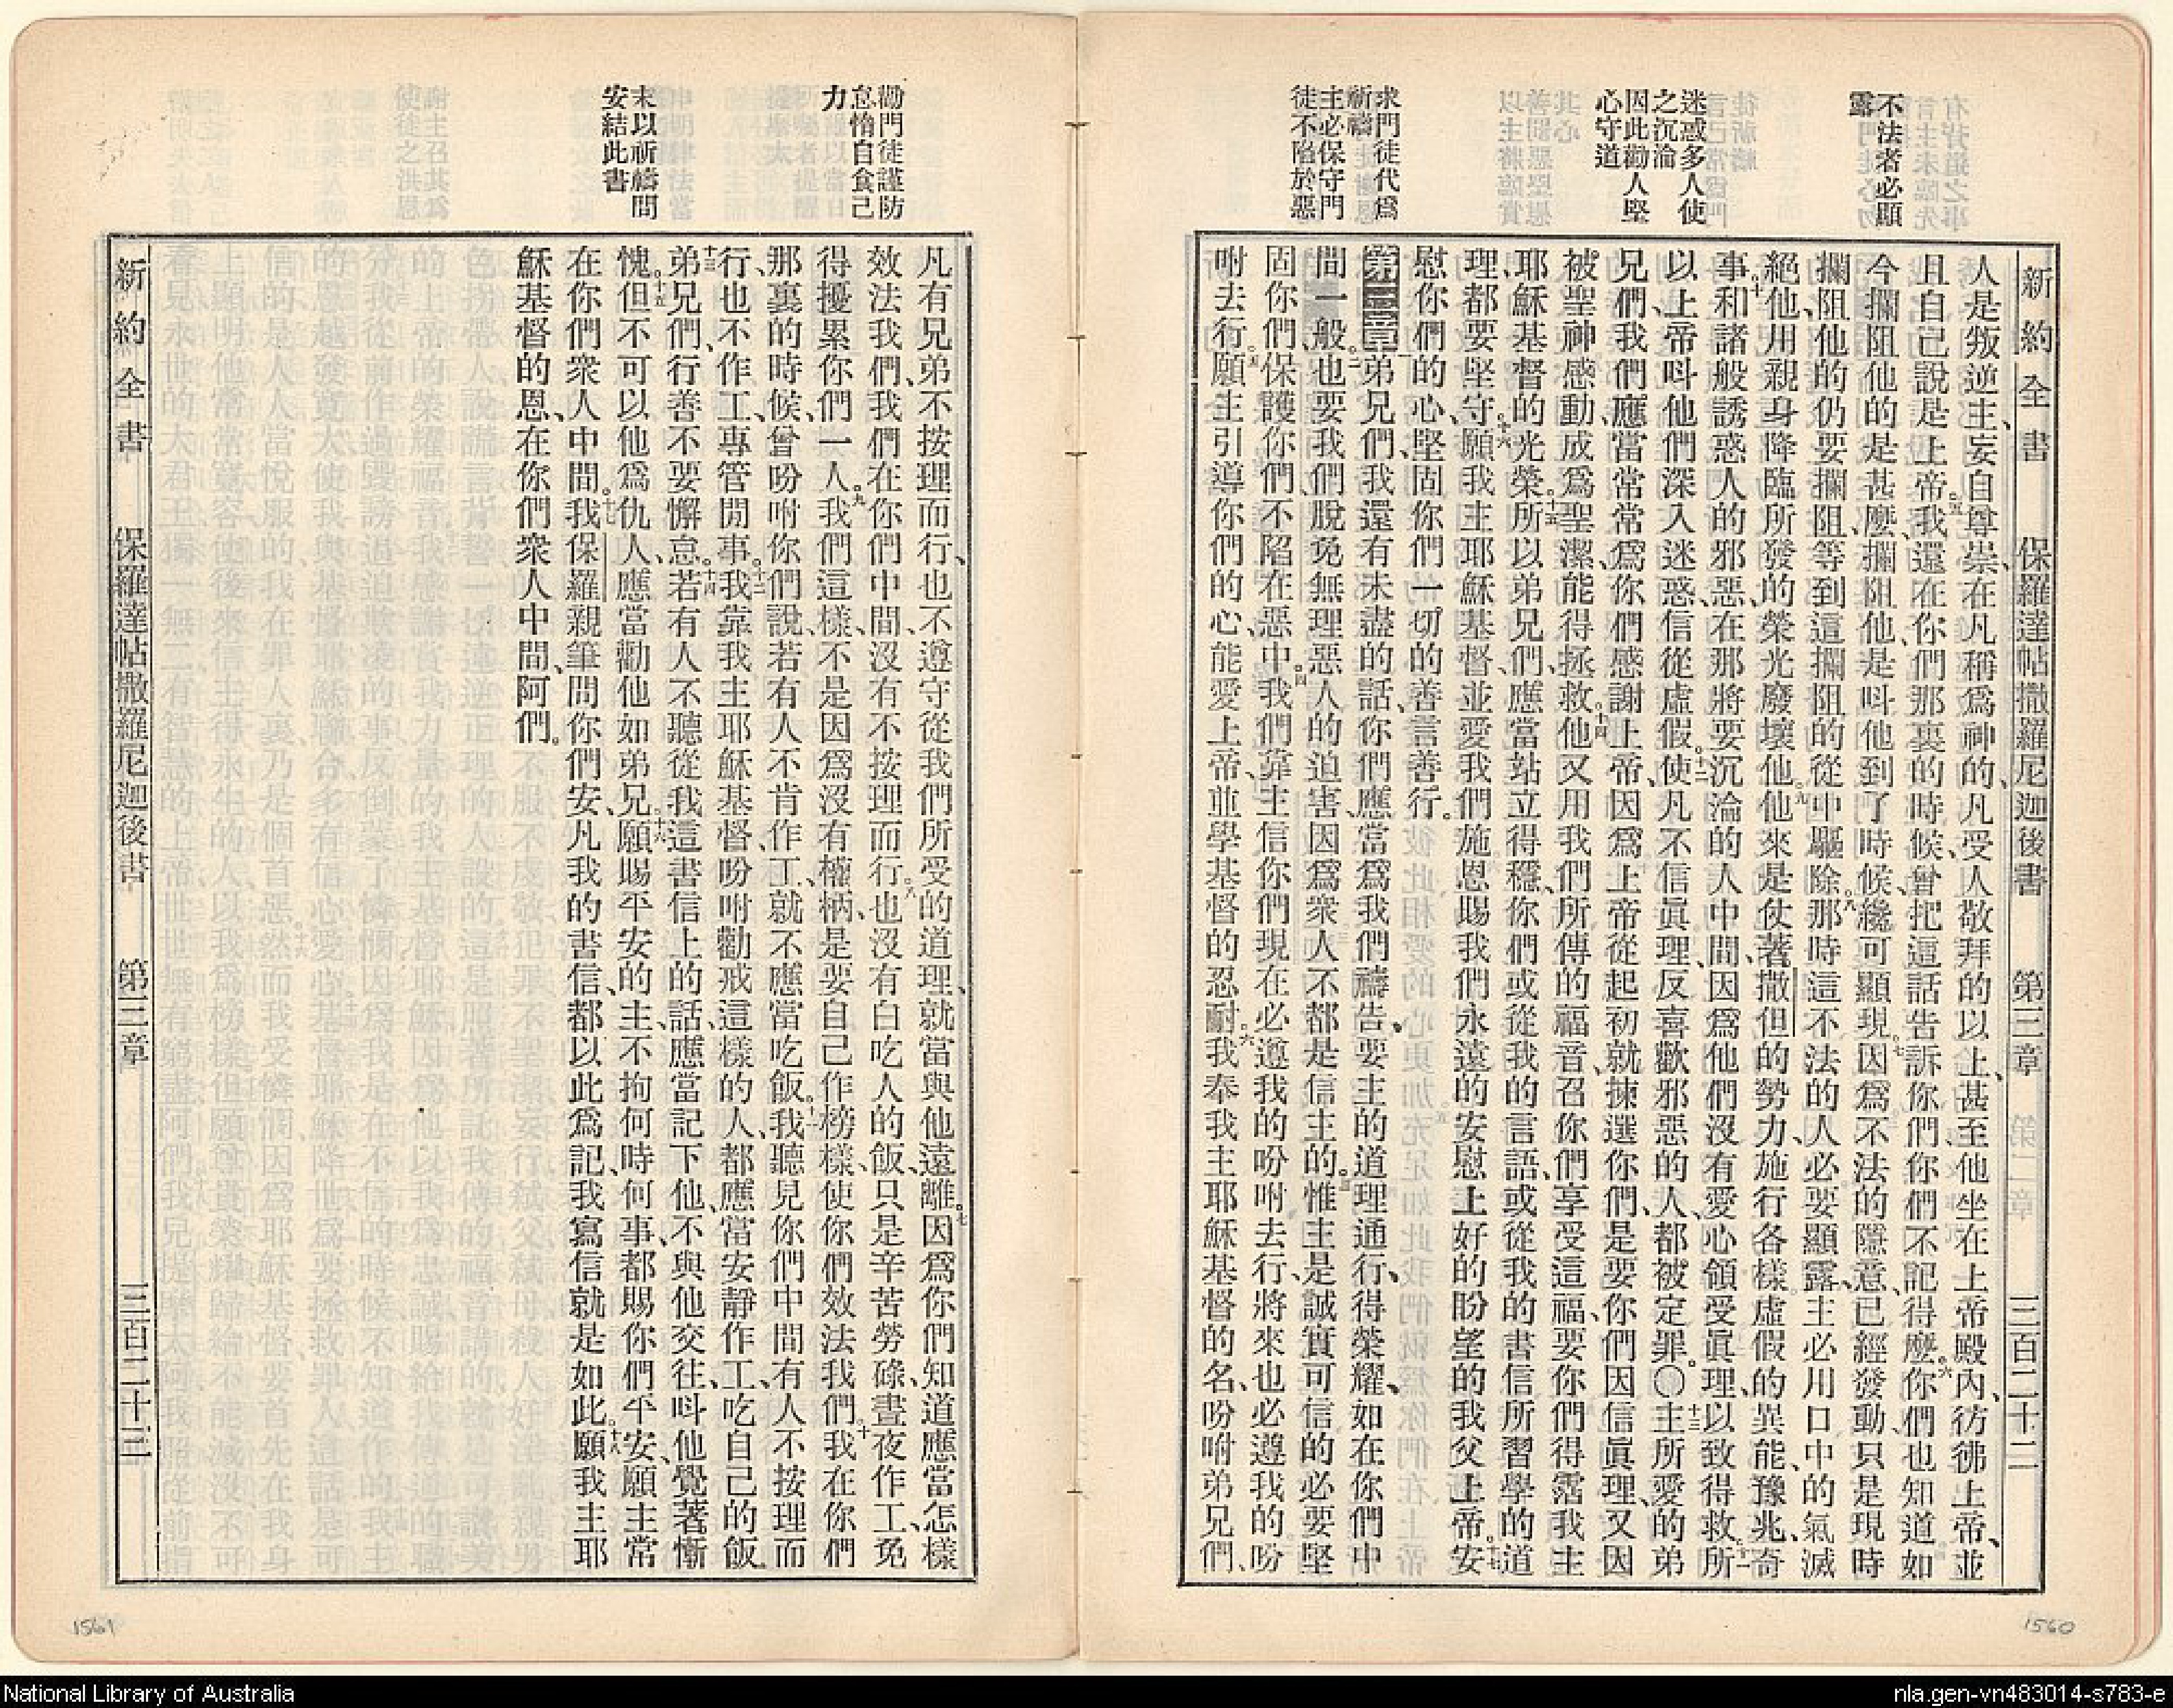 新約全書 保羅達帖撒羅尼迦後書 第三章 三百二十二
不法者必顯
露
迷惑多人使
之沉淪
因此勸人堅
心守道
求門徒代爲
祈禱
主必保守門
徒不陷於惡
人是叛逆主、妄自尊崇、在凡稱爲神的、凡受人敬拜的以上、甚至他坐在上帝殿內、彷彿上帝、並
且自己說是上帝。五我還在你們那裏的時候、曾把這話告訴你們、你們不記得麼。六你們也知道如
今攔阻他的是甚麼、攔阻他、是呌他到了時候、纔可顯現。七因爲不法的隱意、已經發動、只是現時
攔阻他的仍要攔阻、等到這攔阻的從中驅除。八那時這不法的人必要顯露、主必用口中的氣滅
絕他、用親身降臨所發的榮光廢壞他。九他來是仗著撒但的勢力、施行各樣虛假的異能、豫兆、奇
事。十和諸般誘惑人的邪惡、在那將要沉淪的人中間、因爲他們沒有愛心領受眞理、以致得救。十一所
以上帝呌他們深入迷惑、信從虛假。十二使凡不信眞理、反喜歡邪惡的人、都被定罪。〇十三主所愛的弟
兄們、我們應當常常爲你們感謝上帝、因爲上帝從起初就揀選你們、是要你們因信眞理、又因
被聖神感動、成爲聖潔、能得拯救。十四他又用我們所傳的福音、召你們享受這福、要你們得霑我主
耶穌基督的光榮。十五所以弟兄們、應當站立得穩、你們或從我的言語、或從我的書信所習學的道
理、都要堅守。十六願我主耶穌基督、並愛我們、施恩賜我們永遠的安慰上好的盼望的我父上帝。十七安
慰你們的心、堅固你們一切的善言善行。
第三章 一弟兄們、我還有未盡的話、你們應當爲我們禱告、要主的道理通行、得榮耀、如在你們中
間一般。二也要我們脫免無理惡人的迫害、因爲衆人不都是信主的。三惟主是誠實可信的、必要堅
固你們、保護你們、不陷在惡中。四我們靠主信你們現在必遵我的吩咐去行、將來也必遵我的吩
咐去行。五願主引導你們的心、能愛上帝、並學基督的忍耐。六我奉我主耶穌基督的名、吩咐弟兄們、
1560
勸門徒謹防
怠惰自食己
力
末以祈禱問
安結此書
凡有兄弟不按理而行、也不遵守從我們所受的道理、就當與他遠離。七因爲你們知道應當怎樣
效法我們、我們在你們中間、沒有不按理而行。八也沒有白吃人的飯、只是辛苦勞碌、晝夜作工、免
得擾累你們一人。九我們這樣、不是因爲沒有權柄、是要自己作榜樣、使你們效法我們。十我在你們
那裏的時候、曾吩咐你們說、若有人不肯作工、就不應當吃飯。十一我聽見你們中間有人不按理而
行、也不作工、專管閒事。十二我靠我主耶穌基督吩咐勸戒這樣的人、都應當安靜作工、吃自己的飯。
十三弟兄們、行善不要懈怠。十四若有人不聽從我這書信上的話、應當記下他、不與他交往、呌他覺著慚
愧。十五但不可以他爲仇人、應當勸他如弟兄。十六願賜平安的主、不拘何時何事、都賜你們平安、願主常
在你們衆人中間。十七我保羅親筆問你們安、凡我的書信、都以此爲記、我寫信就是如此。十八願我主耶
穌基督的恩、在你們衆人中間、阿們。
新約全書 保羅達帖撒羅尼迦後書 第三章 三百二十三
1561
National Library of Australia
nla.gen-vn483014-s783-e